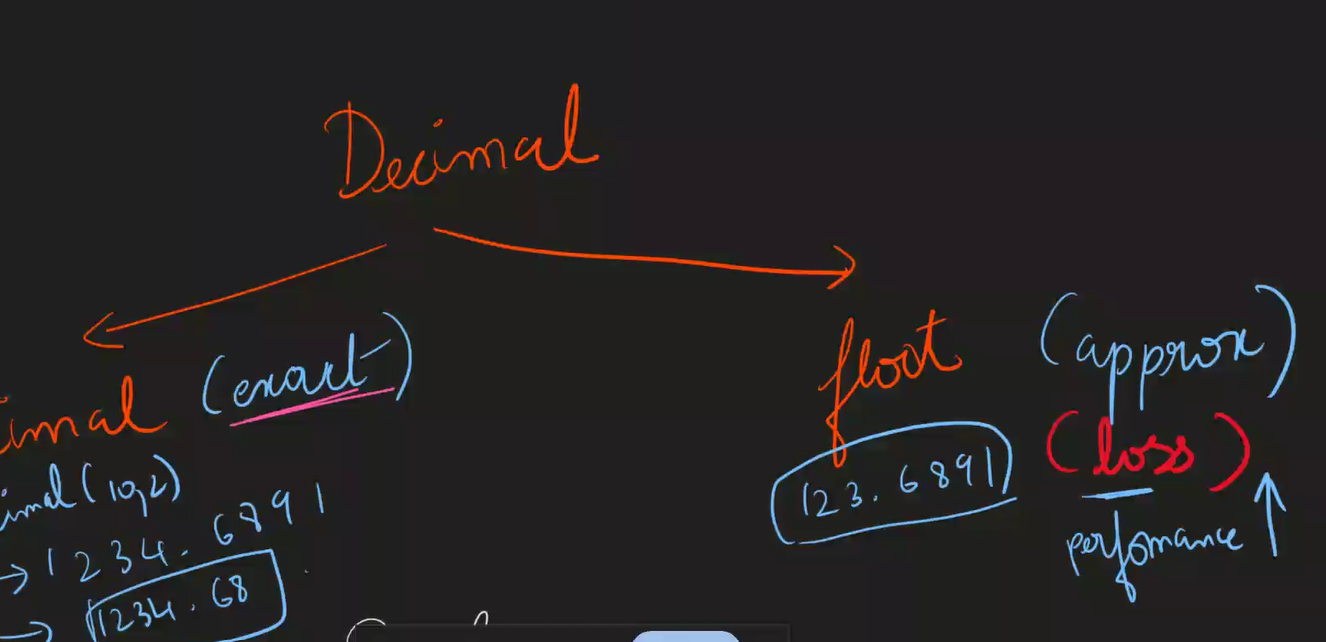 Decimal
imal (exact)
imal (10,2)
→ 1234.6891
→ 1234.68
float (approx)
123.6891 (loss)
perfomance ↑